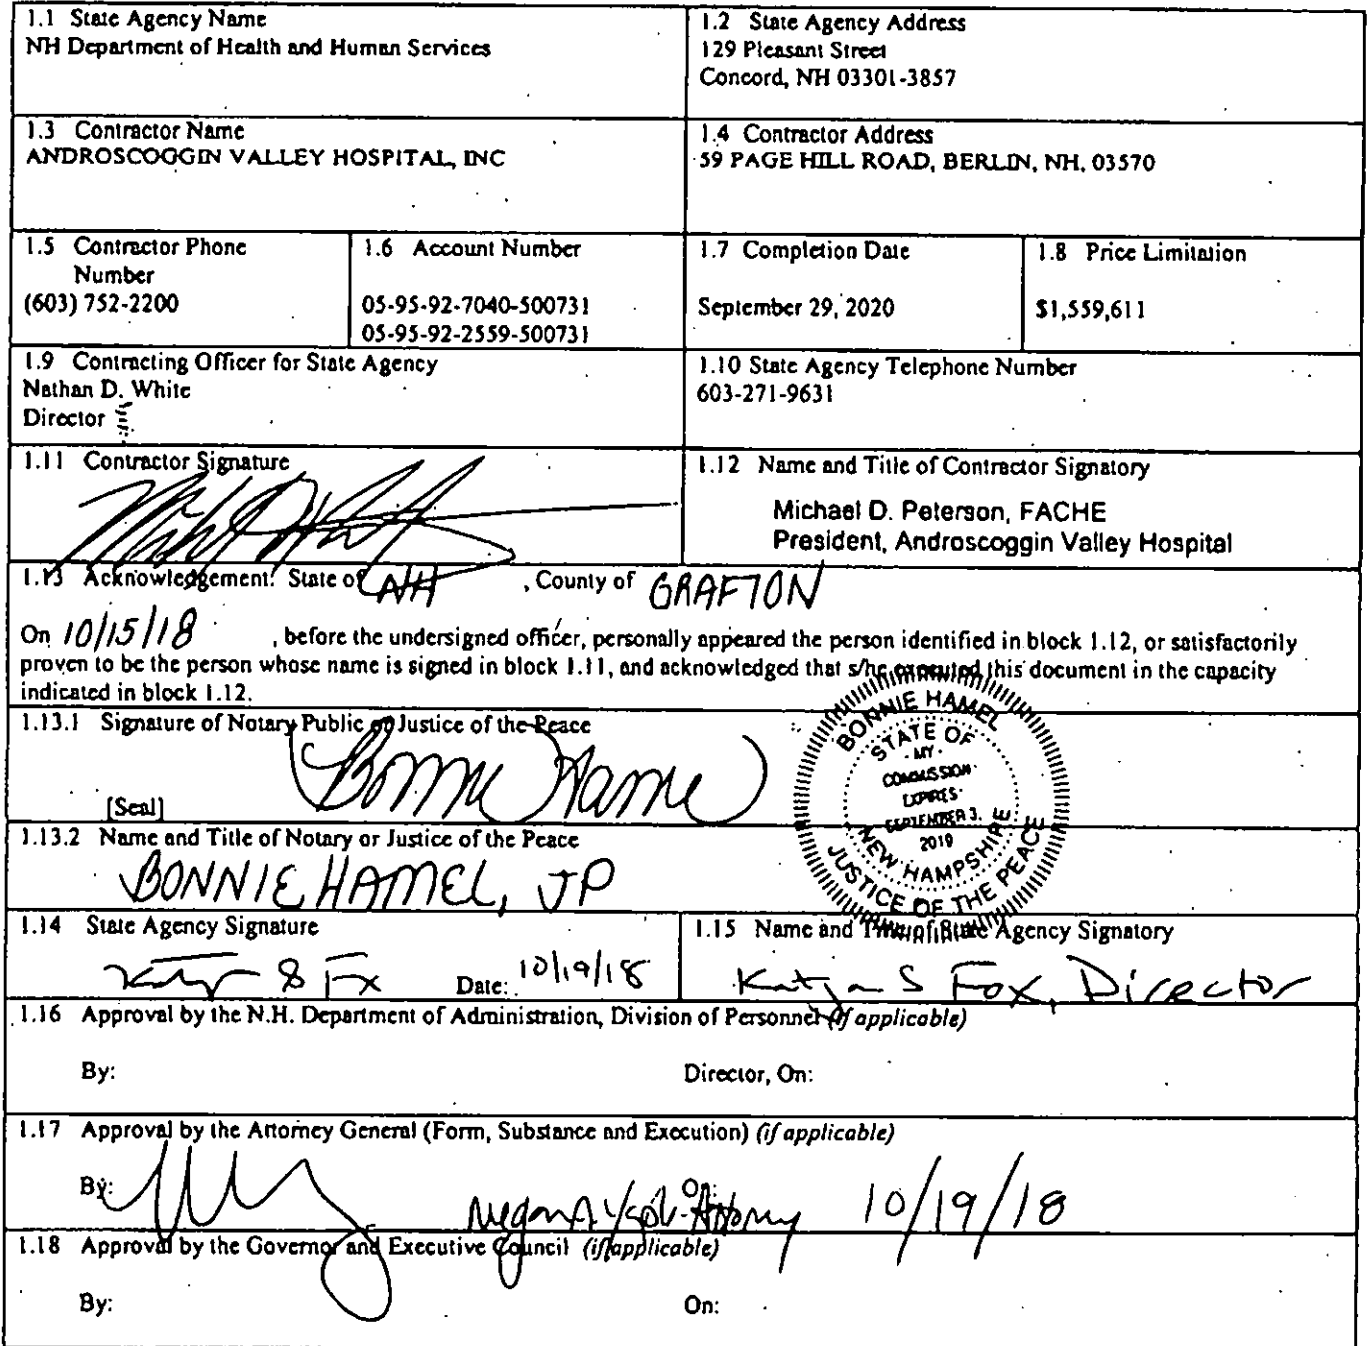 1.1 State Agency Name
NH Department of Health and Human Services
1.2 State Agency Address
129 Pleasant Street
Concord, NH 03301-3857
1.3 Contractor Name
ANDROSCOGGIN VALLEY HOSPITAL, INC
1.4 Contractor Address
59 PAGE HILL ROAD, BERLIN, NH, 03570
1.5 Contractor Phone
Number
(603) 752-2200
1.6 Account Number
05-95-92-7040-500731
05-95-92-2559-500731
1.7 Completion Date
September 29, 2020
1.8 Price Limitation
$1,559,611
1.9 Contracting Officer for State Agency
Nathan D. White
Director
1.10 State Agency Telephone Number
603-271-9631
1.11 Contractor Signature
1.12 Name and Title of Contractor Signatory
Michael D. Peterson, FACHE
President, Androscoggin Valley Hospital
1.13 Acknowledgement: State of NH , County of GRAFTON
On 10/15/18 , before the undersigned officer, personally appeared the person identified in block 1.12, or satisfactorily
proven to be the person whose name is signed in block 1.11, and acknowledged that s/he executed this document in the capacity
indicated in block 1.12.
1.13.1 Signature of Notary Public or Justice of the Peace
Bonnie Hamel
[Seal]
BONNIE HAMEL
STATE OF
MY
COMMISSION
EXPIRES
SEPTEMBER 3,
2019
NEW HAMPSHIRE
JUSTICE OF THE PEACE
1.13.2 Name and Title of Notary or Justice of the Peace
BONNIE HAMEL, JP
1.14 State Agency Signature
Date: 10/19/18
1.15 Name and Title of State Agency Signatory
Katja S Fox, Director
1.16 Approval by the N.H. Department of Administration, Division of Personnel (if applicable)
By:
Director, On:
1.17 Approval by the Attorney General (Form, Substance and Execution) (if applicable)
By:
On:
10/19/18
1.18 Approval by the Governor and Executive Council (if applicable)
By:
On: